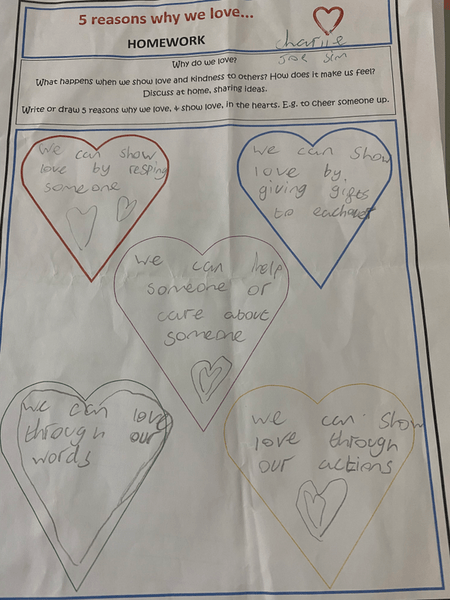 5 reasons why we love...
HOMEWORK
charlie
Why do we love?
What happens when we show love and kindness to others? How does it make us feel?
Discuss at home, sharing ideas.
Write or draw 5 reasons why we love, & show love, in the hearts. E.g. to cheer someone up.
we can show
love by resping
someone
we can show
love by
giving gifts
to eachover
we can help
someone or
care about
someone
we can love
through our
words
we can show
love through
our actions